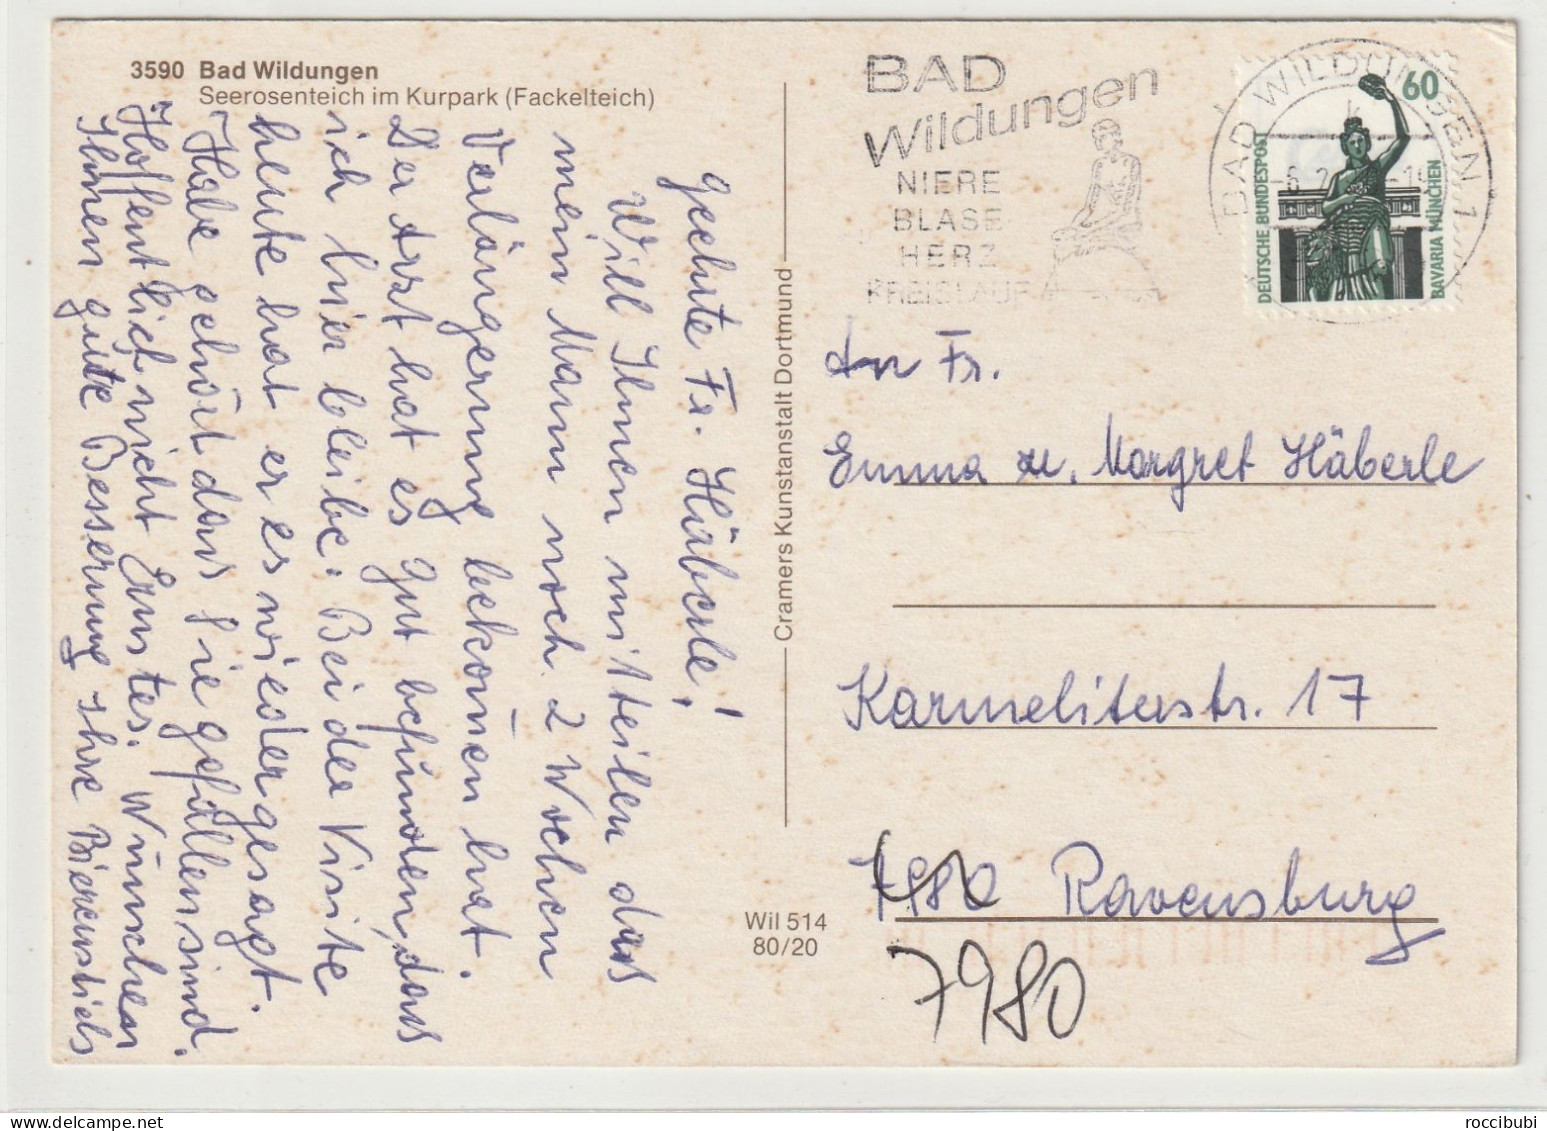 3590 Bad Wildungen
Seerosenteich im Kurpark (Fackelteich)
geehrte Fr. Häberle!
Will Ihnen mitteilen das
mein Mann noch 2 Wochen
Verlängerung bekom̄en hat.
Der Arzt hat es gut befunden, das
ich hier bleibe. Bei der Visite
heute hat er es wieder gesagt.
Habe gehört das Sie gefallen sind.
Hoffentlich nicht Ernstes. Wünschen
Ihnen gute Besserung Ihre Bierenstiels
Cramers Kunstanstalt Dortmund
Wil 514
80/20
BAD
Wildungen
NIERE
BLASE
HERZ
KREISLAUF
BAD WILDUNGEN 1
60
DEUTSCHE BUNDESPOST
BAVARIA MÜNCHEN
An Fr.
Emma u. Margret Häberle
Karmeliterstr. 17
7980 Ravensburg
7980
www.delcampe.net
roccibubi